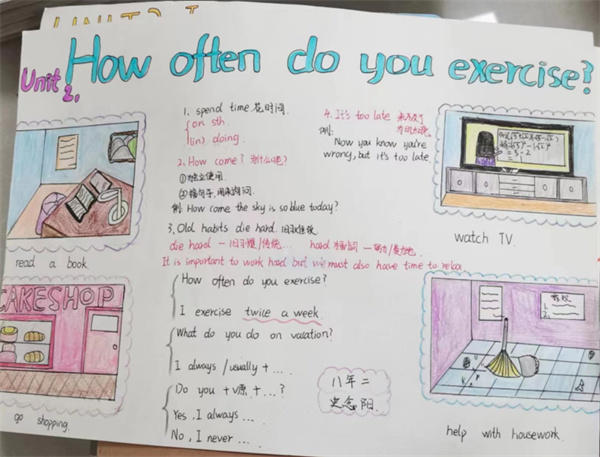 Unit 2. How often do you exercise?
1. spend time 花时间
{on sth
(in) doing.
2. How come? 为什么呢?
①独立使用
②接句子,用来询问.
例: How come the sky is so blue today?
3. Old habits die hard. 旧习难改
die hard — 旧习惯/传统...
It is important to work hard but we must also have time to relax
4. It's too late 来不及了
例:
Now you know you're
wrong, but it's too late
read a book
watch TV.
CAKESHOP
go shopping.
How often do you exercise?
I exercise twice a week.
What do you do on vacation?
I always / usually + ...
Do you + v原 + ...?
Yes, I always ...
No, I never ...
八年二
史念阳.
help with housework.